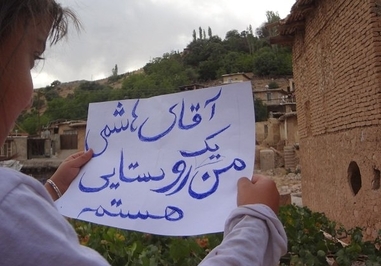 آقای هاشمی
یک
من روستایی
هستم